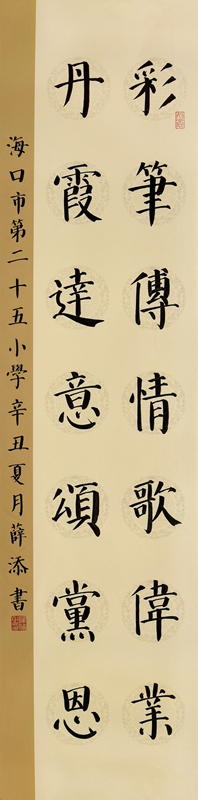 彩筆傳情歌偉業
丹霞達意頌黨恩
海口市第二十五小學辛丑夏月薛添書